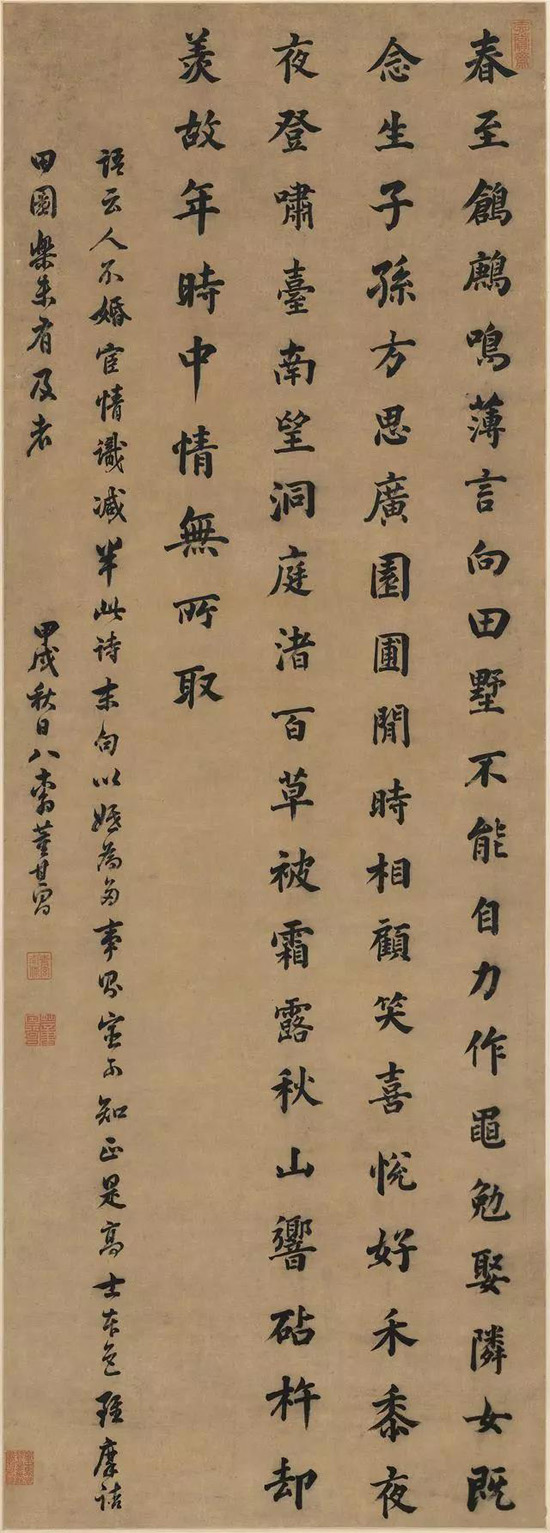 春至鶬鶊鳴薄言向田墅不能自力作黽勉娶隣女既
念生子孫方思廣園圃閒時相顧笑喜悅好禾黍夜
夜登嘯臺南望洞庭渚百草被霜露秋山響砧杵却
羨故年時中情無所取
語云人不婚宦情識减半此詩末句以婚為多事眾室不知正是高士本色雖摩詰
田園樂未有及者
甲戌秋日八十翁董其昌